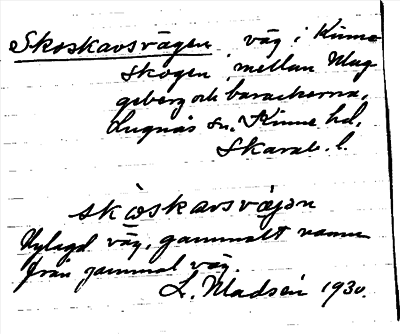 Skoskavsvägen väg i Kinne
skogen mellan Mag
geberg och barackerna.
Lugnås sn. Kinne hd.
Skarab. l.
skoskavsvägen
Nylagd väg, gammalt namn
från gammal väg.
L. Madsén 1930.